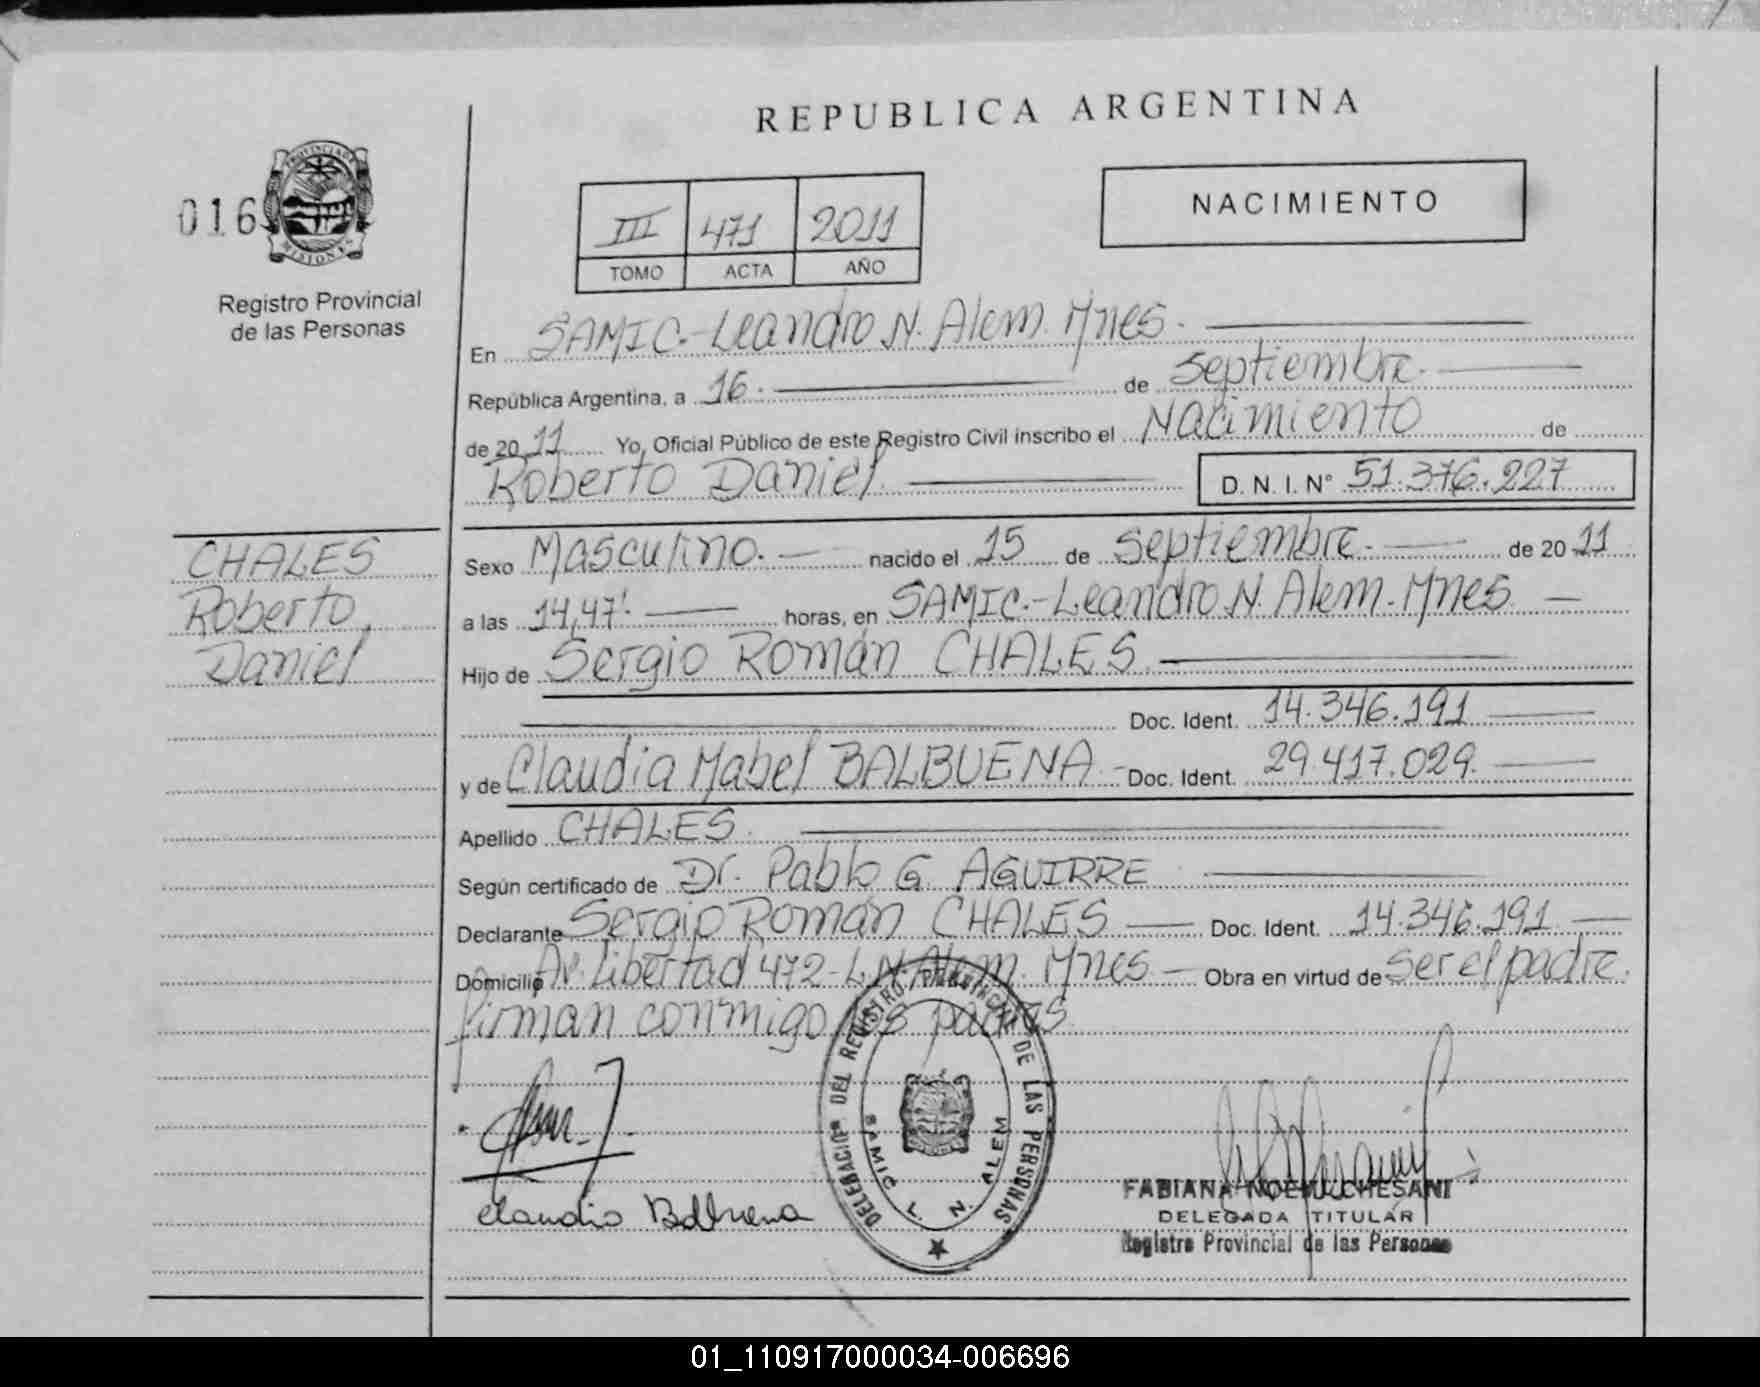 REPUBLICA ARGENTINA
016
PROVINCIA DE MISIONES
Registro Provincial
de las Personas
III 471 2011
TOMO ACTA AÑO
NACIMIENTO
En SAMIC.-Leandro N. Alem. Mnes.
República Argentina, a 16. de Septiembre.
de 20 11 Yo, Oficial Público de este Registro Civil inscribo el Nacimiento de
Roberto Daniel. D. N. I. N° 51.376.227
CHALES
Roberto
Daniel
Sexo Masculino. nacido el 15 de Septiembre. de 20 11
a las 14,47'. horas, en SAMIC.-Leandro N. Alem. Mnes
Hijo de Sergio Román CHALES.
Doc. Ident. 14.346.191
y de Claudia Mabel BALBUENA.- Doc. Ident. 29.417.029.
Apellido CHALES.
Según certificado de Dr. Pablo G. AGUIRRE
Declarante Sergio Román CHALES Doc. Ident. 14.346.191.
Domicilio Av. Libertad 472-L.N.Alem. Mnes Obra en virtud de ser el padre.
firman conmigo los padres
DELEGACION DEL REGISTRO PROVINCIAL DE LAS PERSONAS
SAMIC L. N. ALEM
Claudia Balbuena
FABIANA NOEMI CHESANI
DELEGADA TITULAR
Registro Provincial de las Personas
01_110917000034-006696